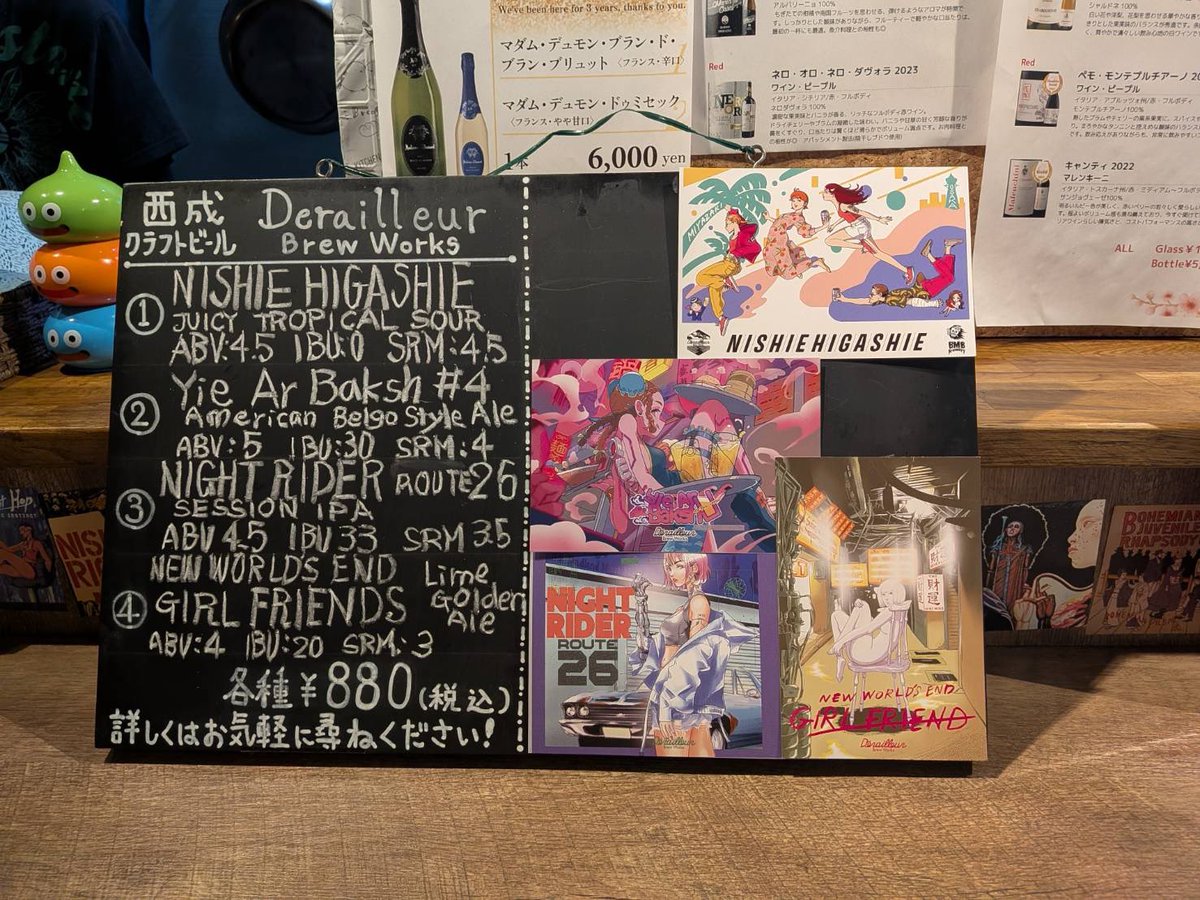 We've been here for 3 years, thanks to you.
マダム・デュモン・ブラン・ド・
ブラン・ブリュット〈フランス・辛口〉
マダム・デュモン・ドゥミセック
〈フランス・やや甘口〉
1本 6,000 yen
アルバリーニョ 100%
Red
ネロ・オロ・ネロ・ダヴォラ 2023
ワイン・ピープル
イタリア・シチリア/赤・フルボディ
ネロダヴォラ100%
シャルドネ 100%
Red
ペモ・モンテプルチアーノ 20
ワイン・ピープル
イタリア・アブルッツォ州/赤・フルボディ
モンテプルチアーノ100%
キャンティ 2022
マレンキーニ
イタリア・トスカーナ州/赤・ミディアム~フルボデ
サンジョヴェーゼ100%
ALL Glass¥1
Bottle¥5,
西成 Derailleur
クラフトビール Brew Works
① NISHIE HIGASHIE
JUICY TROPICAL SOUR
ABV:4.5 IBU:0 SRM:4.5
② Yie Ar Baksh #4
American Belgo Style Ale
ABV:5 IBU:30 SRM:4
③ NIGHT RIDER ROUTE 26
SESSION IPA
ABV 4.5 IBU 33 SRM 3.5
④ NEW WORLDS END
GIRL FRIENDS
Lime
Golden
Ale
ABV:4 IBU:20 SRM:3
各種¥880(税込)
詳しくはお気軽に尋ねください!
MIYAZAKI
NISHIEHIGASHIE
BMB
Derailleur
Brew Works
NIGHT
RIDER
ROUTE
26
Derailleur
Brew Works
財運
NEW WORLD'S END
GIRL FRIEND
Derailleur
Brew Works
NISHI
BOHEMIAN
JUVENILE
RHAPSODY